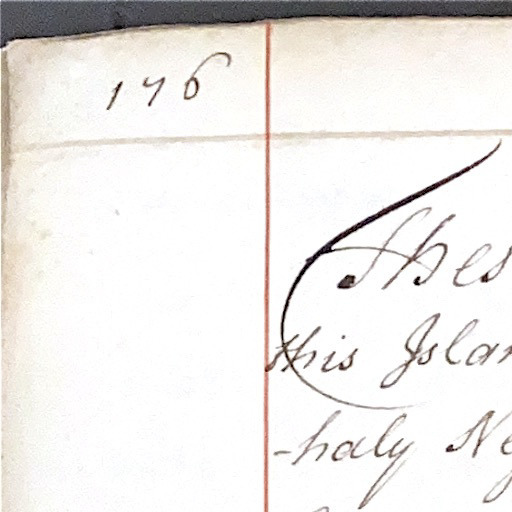 176
Thes
this Islan
-haly Ne